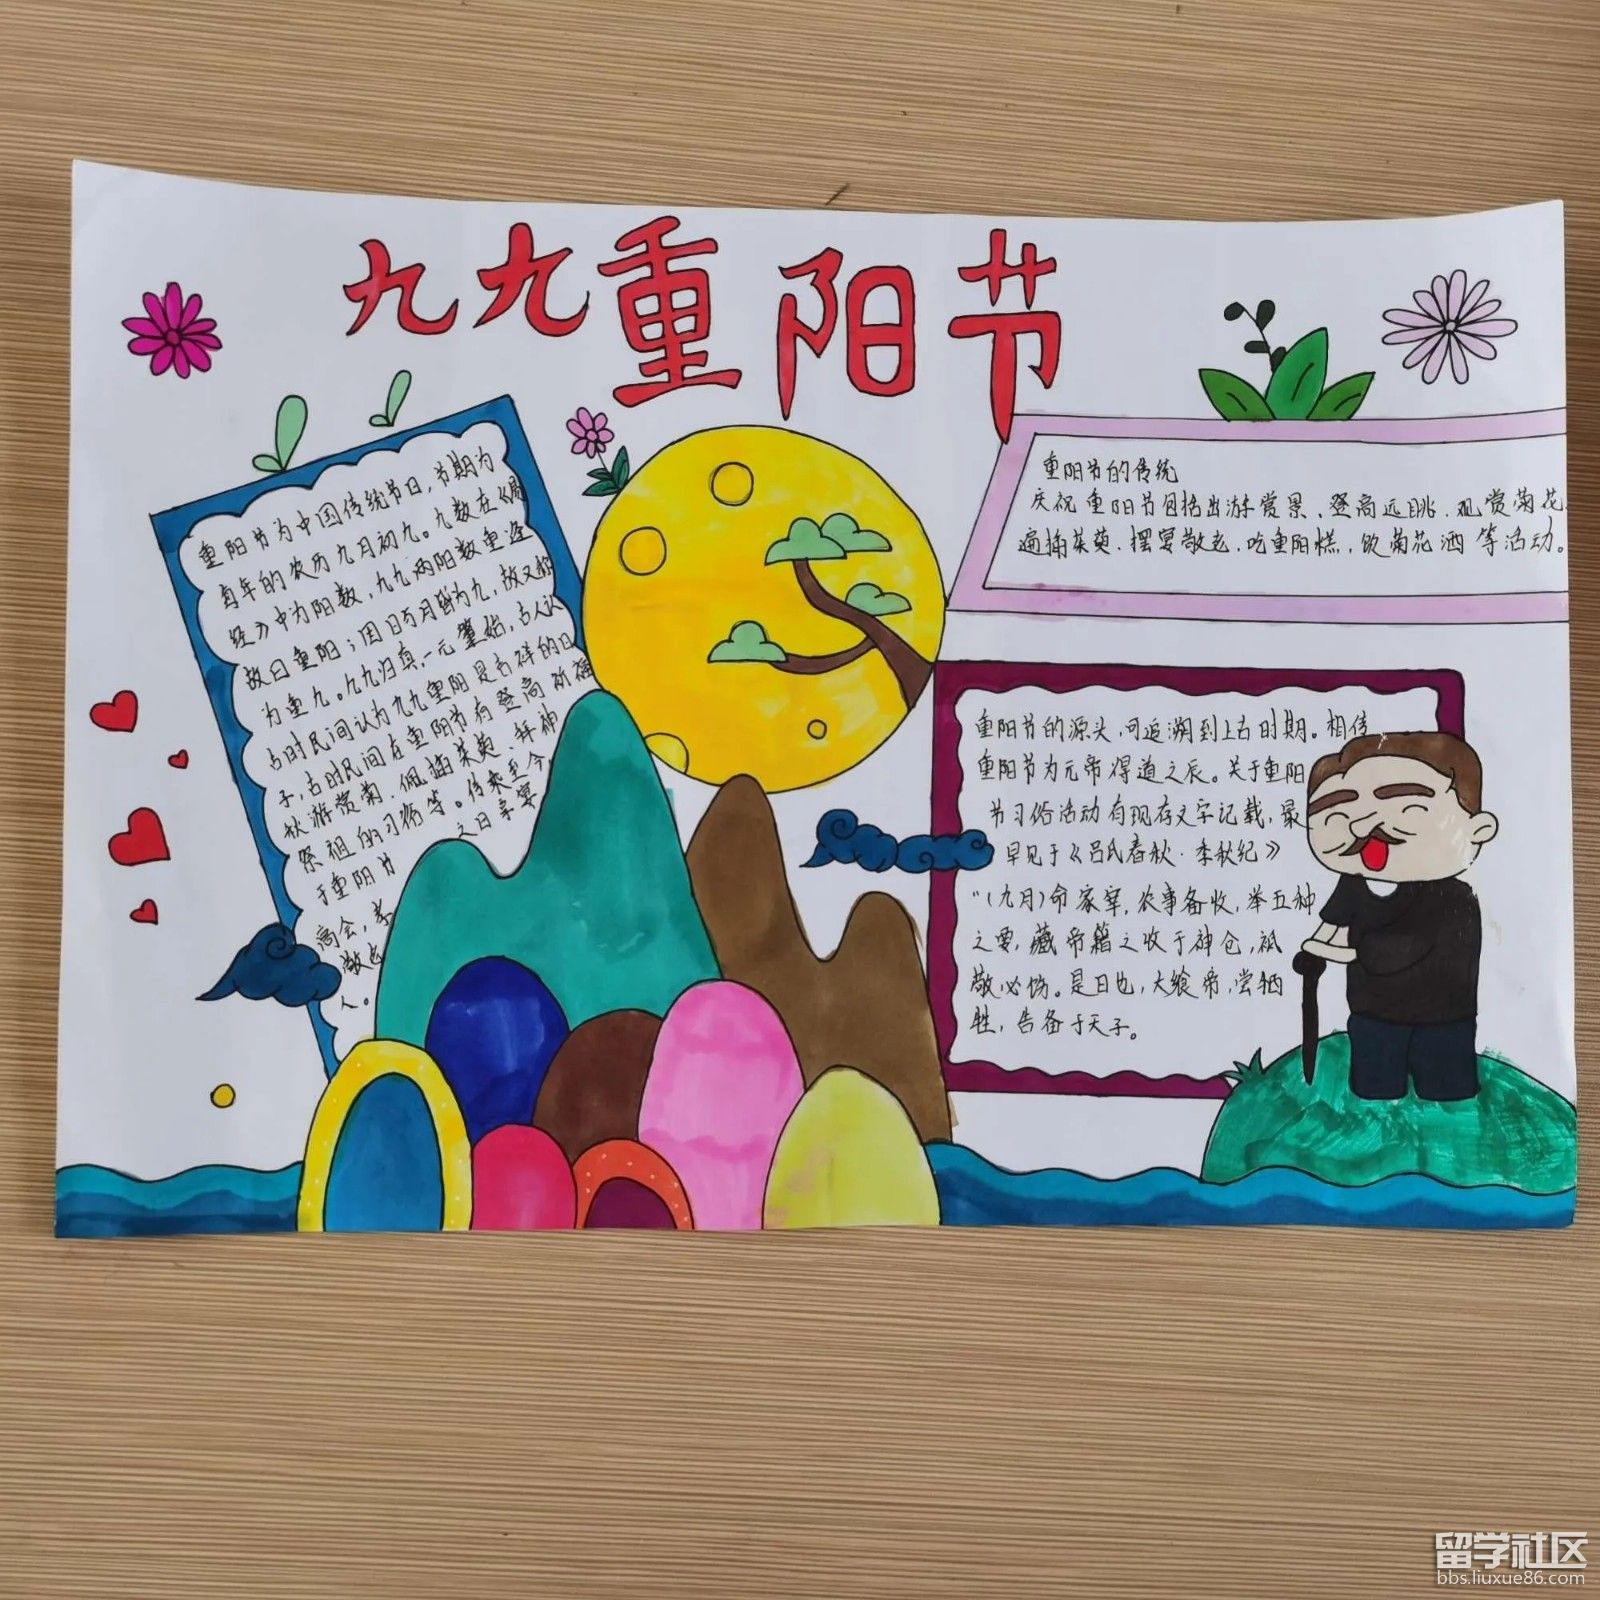 九九重阳节
重阳节为中国传统节日,节期为
每年的农历九月初九。九数在《易
经》中为阳数,九九两阳数重逢
故曰重阳;因日与月皆为九,故又称
为重九。九九归真,一元肇始,古人认
古时民间认为九九重阳是吉祥的日
子,古时民间在重阳节有登高祈福
秋游赏菊、佩插茱萸、拜神
祭祖的习俗等。传承至今,
于重阳节 之日享宴
高会,孝
敬老
人。
重阳节的传统
庆祝重阳节包括出游赏景、登高远眺、观赏菊花、
遍插茱萸、摆宴敬老、吃重阳糕、饮菊花酒等活动。
重阳节的源头,可追溯到上古时期。相传
重阳节为元帝得道之辰。关于重阳
节习俗活动有现存文字记载,最
早见于《吕氏春秋·季秋纪》
"(九月)命家宰,农事备收,举五种
之要,藏帝籍之收于神仓,祗
敬必饬。是日也,大飨帝,尝牺
牲,告备于天子。
留学社区
bbs.liuxue86.com